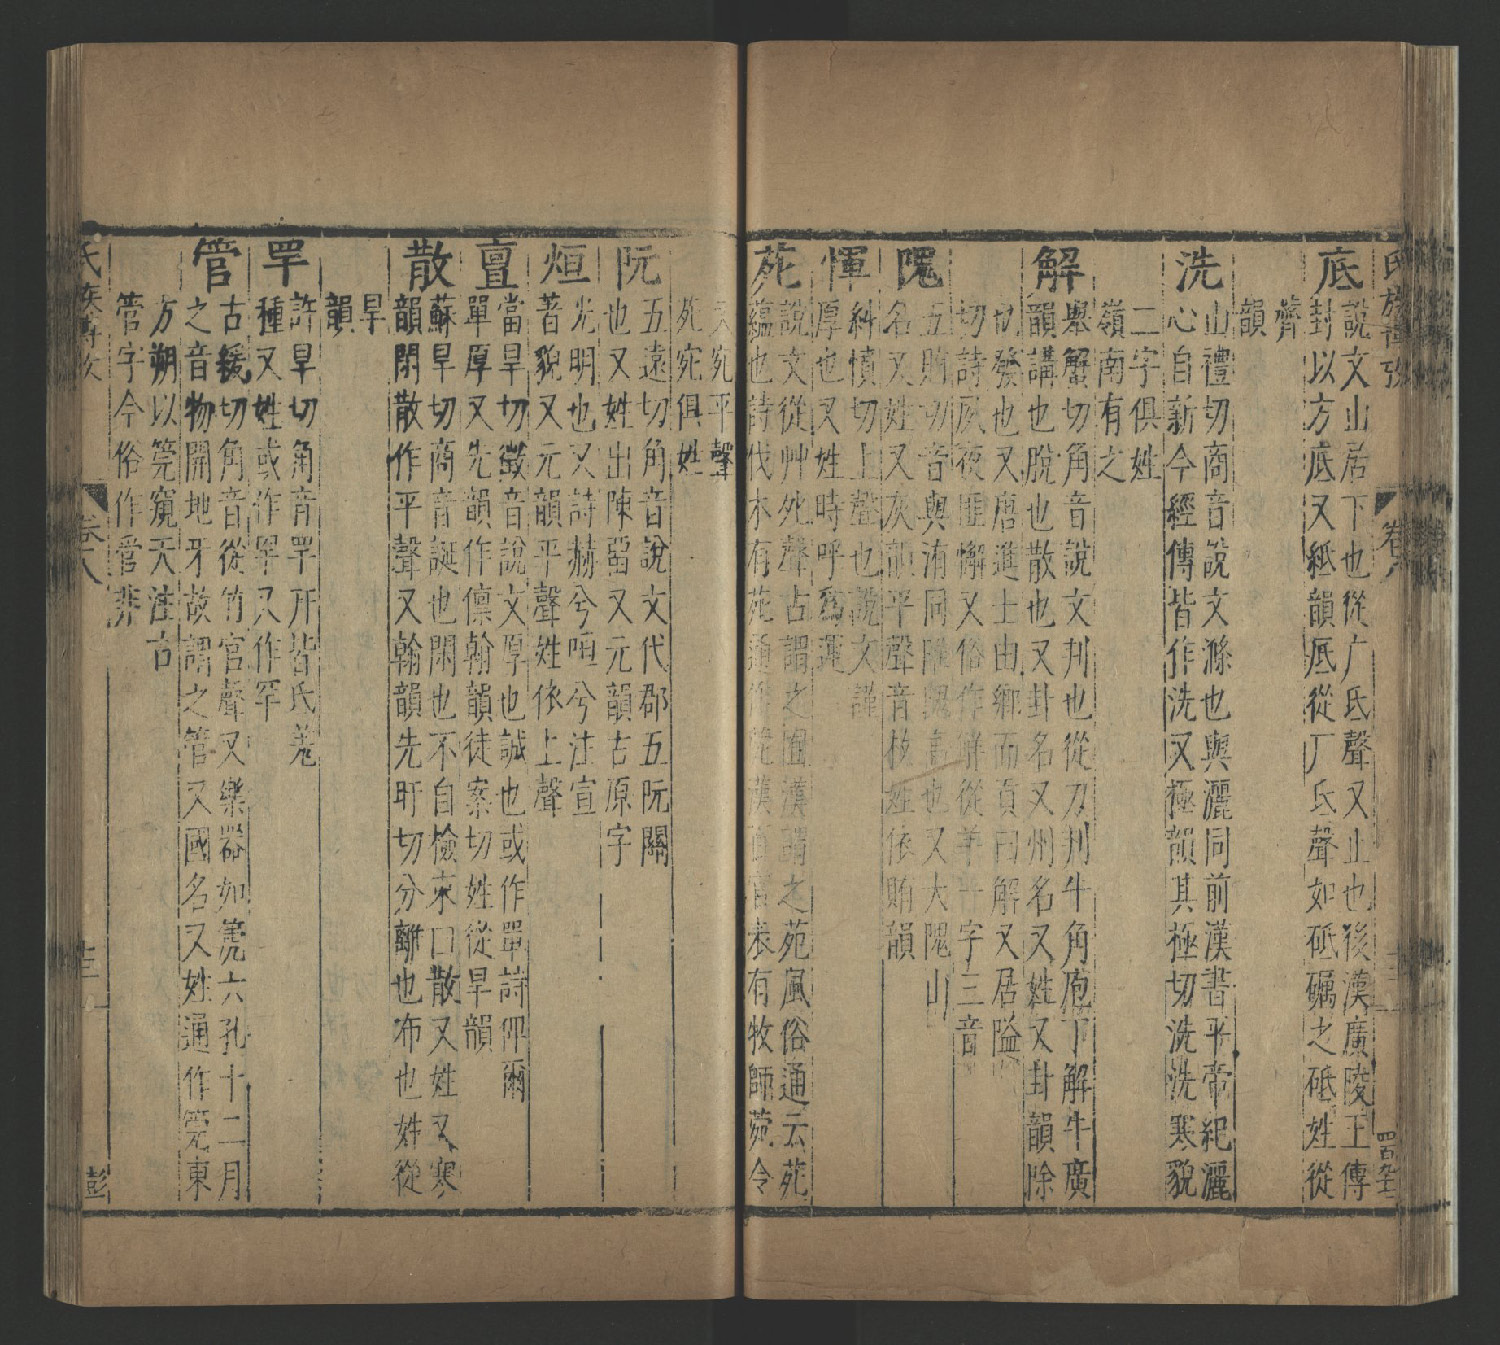 底
說文山居下也從广氐聲又止也後漢廣陵王傳
封以方底又紙韻底從厂氐聲如砥礪之砥姓從
濟
韻
洗
山禮切商音說文滌也與灑同前漢書平帝紀灑
心自新今經傳皆作洗又極韻其極切洗洗寒貌
二字俱姓
嶺南有之
解
舉蟹切角音說文判也從刀判牛角庖丁解牛廣
韻講也脫也散也又卦名又州名又姓又卦韻除
也發也又唐進士由鄉而貢曰解又居隘
切詩夙夜匪懈又俗作觧從羊廿一字三音
隗
五賄切音與洧同隗高也又大隗山
名又姓又灰韻平聲音桅姓依賄韻
惲
糾憤切上聲也說文謹
厚也又姓時呼爲運
苑
說文從艸夗聲古謂之囿漢謂之苑風俗通云苑
蘊也詩伐木有苑通作菀漢百官表有牧師菀令
又宛平聲
苑宛俱姓
阮
五遠切角音說文代郡五阮關
也又姓出陳留又元韻古原字
烜
光明也又詩赫兮咺兮注宣
著貌又元韻平聲姓依上聲
亶
當旱切徵音說文厚也誠也或作單詩俾爾
單厚又先韻作儃翰韻徒案切姓從旱韻
散
蘇旱切商音誕也閑也不自檢束曰散又姓又寒
韻閒散作平聲又翰韻先旰切分離也布也姓從
旱
韻
罕
許旱切角音罕幵皆氏羌
種又姓或作䍐又作罕
管
古緩切角音從竹官聲又樂器如篪六孔十二月
之音物開地牙故謂之管又國名又姓通作筦東
方朔以筦窺天注古
管字今俗作菅非
氏族博攷
卷八
十三
彭